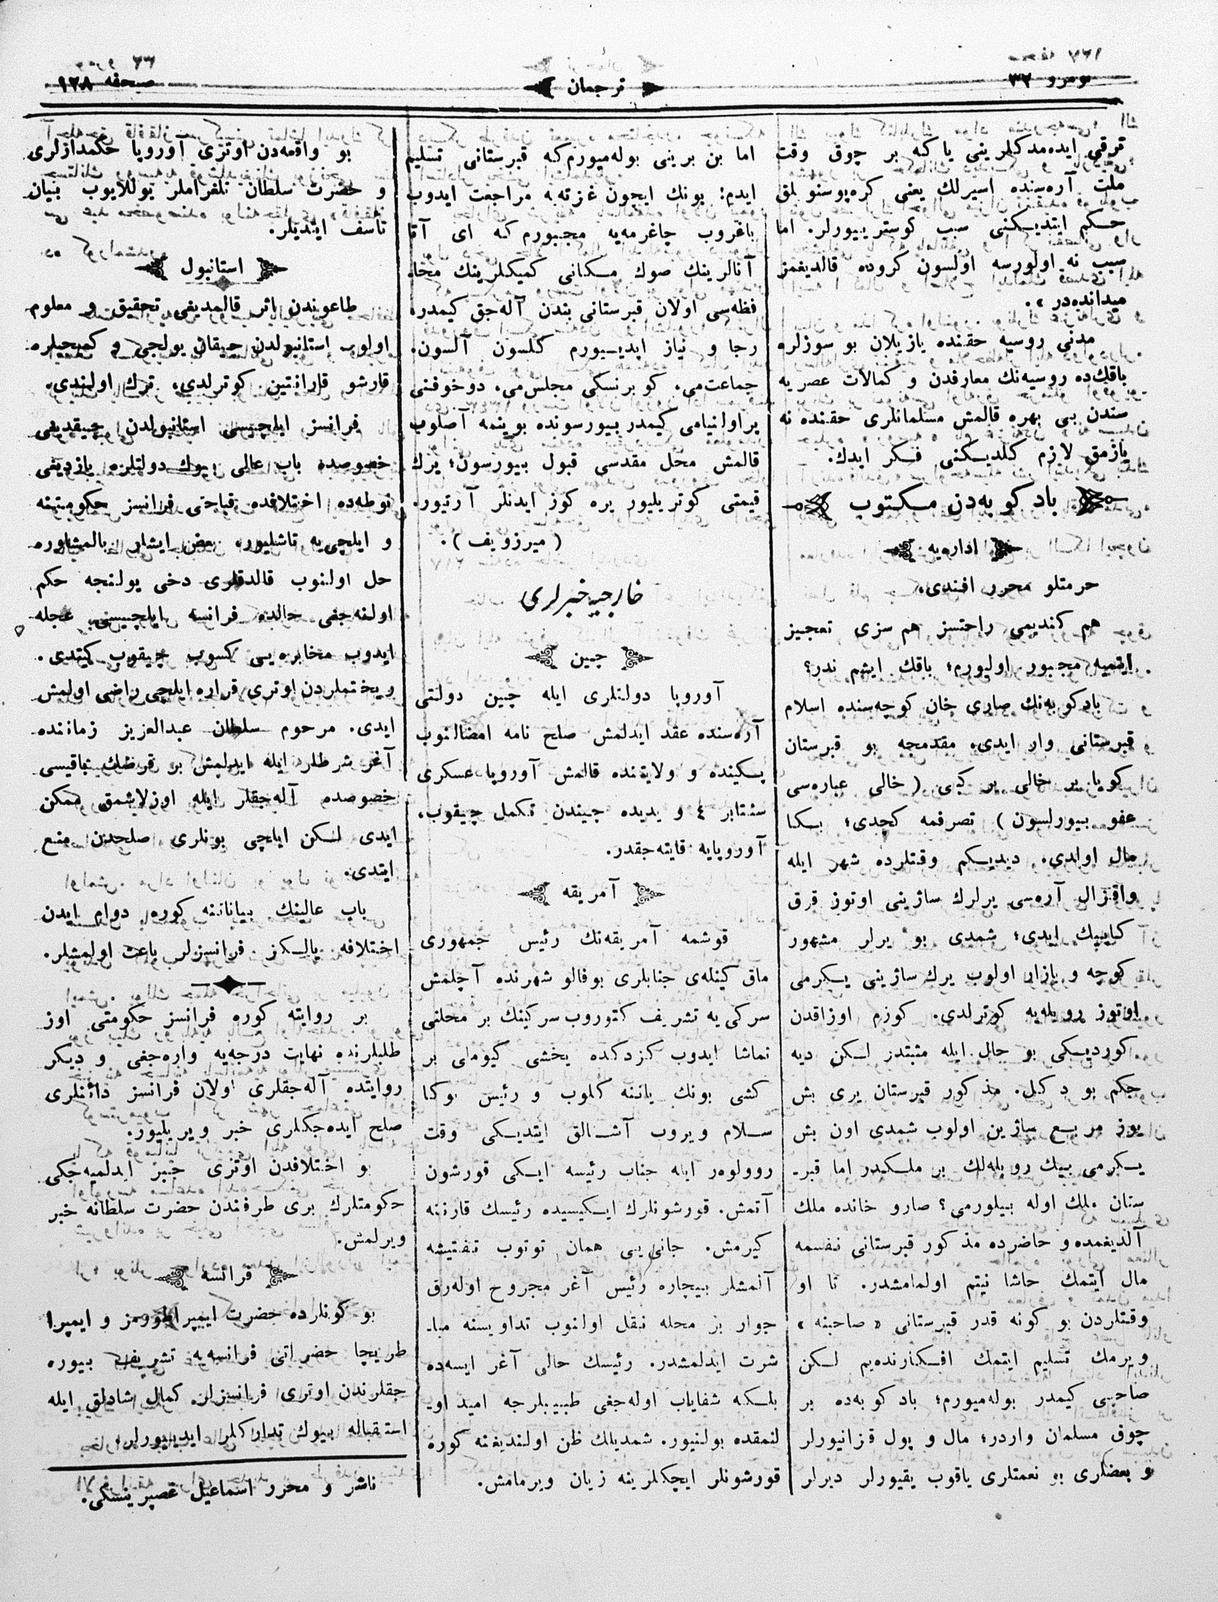 نومرو ٣٢
ترجمان
صحفه ١٢٨
ترقی ایده‌مدكلرینی یا كه بر چوق وقت
ملت آره‌سنده اسیرلك یعنی كره‌پوسنو لمق
حكم ایتدیكنی سبب كوستریيورلر. اما
سبب نه اولورسه اولسون كروده قالدیغمز
میدانده‌در ».
مدنی روسیه حقنده یازیلان بو سوزلره
باقلدكده روسیه‌نك معارفدن و كمالات عصریه
سندن بی بهره قالمش مسلمانلری حقنده نه
یازمق لازم كلدیكنی فكر ایدك.
بادكوبه‌دن مكتوب
اداریه
حرمتلو محرر افندی،
هم كندیمی راحتسز هم سزی تعجیز
ایتمیه مجبور اولیورم؛ باقك ایشم ندر؟
بادكوبه‌نك صاری خان كوچه‌سنده اسلام
قبرستانی وار ایدی، مقدمجه بو قبرستان
كویا بر خالی یر كبی (خالی عباره‌سی
عفو بیورلسون) تصرفمه كچدی؛ بكا
مال اولدی. دیدیكم وقتلرده شهر ایله
واقزال آره‌سی یرلرك ساژینی اوتوز قرق
كاپیك ایدی؛ شمدی بو یرلر مشهور
كوچه و بازار اولوب یرك ساژینی یكرمی
اوتوز روبله‌یه كوترلدی. كوزم اوزاقدن
كوردیكی بو جال ایله مثبتدر لكن دیه
جكم بو دكل. مذكور قبرستان یری بش
یوز مربع ساژین اولوب شمدی اون بش
یكرمی بیك روبله‌لك بر ملكیدر اما قبر-
ستان ملك اوله بیلورمی؟ صارو خانده ملك
آلدیغمده و حاضرده مذكور قبرستانی نفسمه
مال ایتمك حاشا نیتم اولمامشدر. تا او
وقتلردن بو كونه قدر قبرستانی « صاحبنه »
ویرمك تسلیم ایتمك افكارنده‌یم لكن
صاحبی كیمدر بوله‌میورم؛ بادكوبه‌ده بر
چوق مسلمان واردر؛ مال و پول قزانیورلر
و بعضلری بو نعمتلری یاقوب یقیورلر دیرلر
اما بن برینی بوله‌میورم‌كه قبرستانی تسلیم
ایدم: بونك ایچون غزته‌یه مراجعت ایدوب
باغروب چاغرمه‌یه مجبورم‌كه ای آتا
آنالرینك صوك مكانی كمیكلرینك محا-
فظه‌سی اولان قبرستانی بندن آله‌جق كیمدر،
رجا و نیاز ایدیورم كلسون آلسون.
جماعت‌می، كوبرنسكی مجلس‌می، دوخوفنی
پراولنیامی كیمدر بیورسونده بوینمه آصلوب
قالمش محل مقدسی قبول بیورسون؛ یرك
قیمتی كوتریلیور یره كوز ایدنلر آرتیور.
(میرزویف).
خارجیه خبرلری
چین
آوروپا دولتلری ایله چین دولتی
آره‌سنده عقد ایدلمش صلح نامه امضالنوب
پكینده و ولایتنده قالمش آوروپا عسكری
سنتابر ٤ و یدیده چیندن تكمل چیقوب،
آوروپایه قایته‌جقدر.
آمریقه
قوشمه آمریقه‌نك رئیس جمهوری
ماق كینله‌ی جنابلری بوفالو شهرنده آچلمش
سركی‌یه تشریف كتوروب سركینك بر محلنی
تماشا ایدوب كزدكده یخشی كیوملی بر
كشی بونك یاننه كلوب و رئیس بوكا
سلام ویروب آشنالق ایتدیكی وقت
روولوه‌ر ایله جناب رئیسه ایكی قورشون
آتمش. قورشونلرك ایكیسیده رئیسك قارننه
كیرمش. جانی‌یی همان توتوب تفتیشه
آلمشلر بیچاره رئیس آغر مجروح اوله‌رق
جوار بر محله نقل اولنوب تداویسنه مبا-
شرت ایدلمشدر. رئیسك حالی آغر ایسه‌ده
بلكه شفایاب اوله‌جغی طبیبلرجه امید او-
لنمقده بولنیور. شمدیلك ظن اولندیغنه كوره
قورشونلر ایچكلرینه زیان ویرمامش.
بو واقعه‌دن اوتری آوروپا حكمدارلری
و حضرت سلطان تلغراملر یوللایوب بیان
تأسف ایتدیلر.
استانبول
طاعوندن اثر قالمدیغی تحقیق و معلوم
اولوب استانبولدن چیقان یولجی و كمیجیلره
قارشو قارانتین كوترلدی، ترك اولندی.
فرانسز ایلچیسی استانبولدن چیقدیغی
خصوصده باب عالی بیوك دولتلره یازدیغی
نوطه‌ده اختلافده قباحتی فرانسز حكومتینه
و ایلچی‌یه تاشلیور، بعض ایشلر بالمشاوره
حل اولنوب قالدقلری دخی یولنجه حكم
اولنه‌جغی حالده فرانسه ایلچیسی عجله
ایدوب مخابره‌یی كسوب چیقوب كیتدی.
ریختملردن اوتری قراره ایلچی راضی اولمش
ایدی. مرحوم سلطان عبدالعزیز زماننده
آغر شرطلر ایله ایدلمش بر قرضك باقیسی
خصوصده آله‌جقلر ایله اوزلاشمق ممكن
ایدی لكن ایلچی بونلری صلحدن منع
ایتدی.
باب عالینك بیاناتنه كوره دوام ایدن
اختلافه یالكز فرانسزلر باعث اولمشلر.
بر روایته كوره فرانسز حكومتی اوز
طلبلرنده نهایت درجه‌یه واره‌جغی و دیكر
روایتده آله‌جقلری اولان فرانسز دائنلری
صلح ایده‌جكلری خبر ویریلیور.
و اختلافدن اوتری جبر ایدلمیه‌جكی
حكومتلرك بری طرفندن حضرت سلطانه خبر
ویرلمش.
فرانسه
بو كونلرده حضرت ایمپراطورمز و ایمپرا
طریچا حضراتی فرانسه‌یه تشریف بیوره
جقلرندن اوتری فرانسزلر كمال شادلق ایله
استقباله بیوك تداركلر ایدیيورلر.
ناشر و محرر اسماعیل غصپرینسكی.